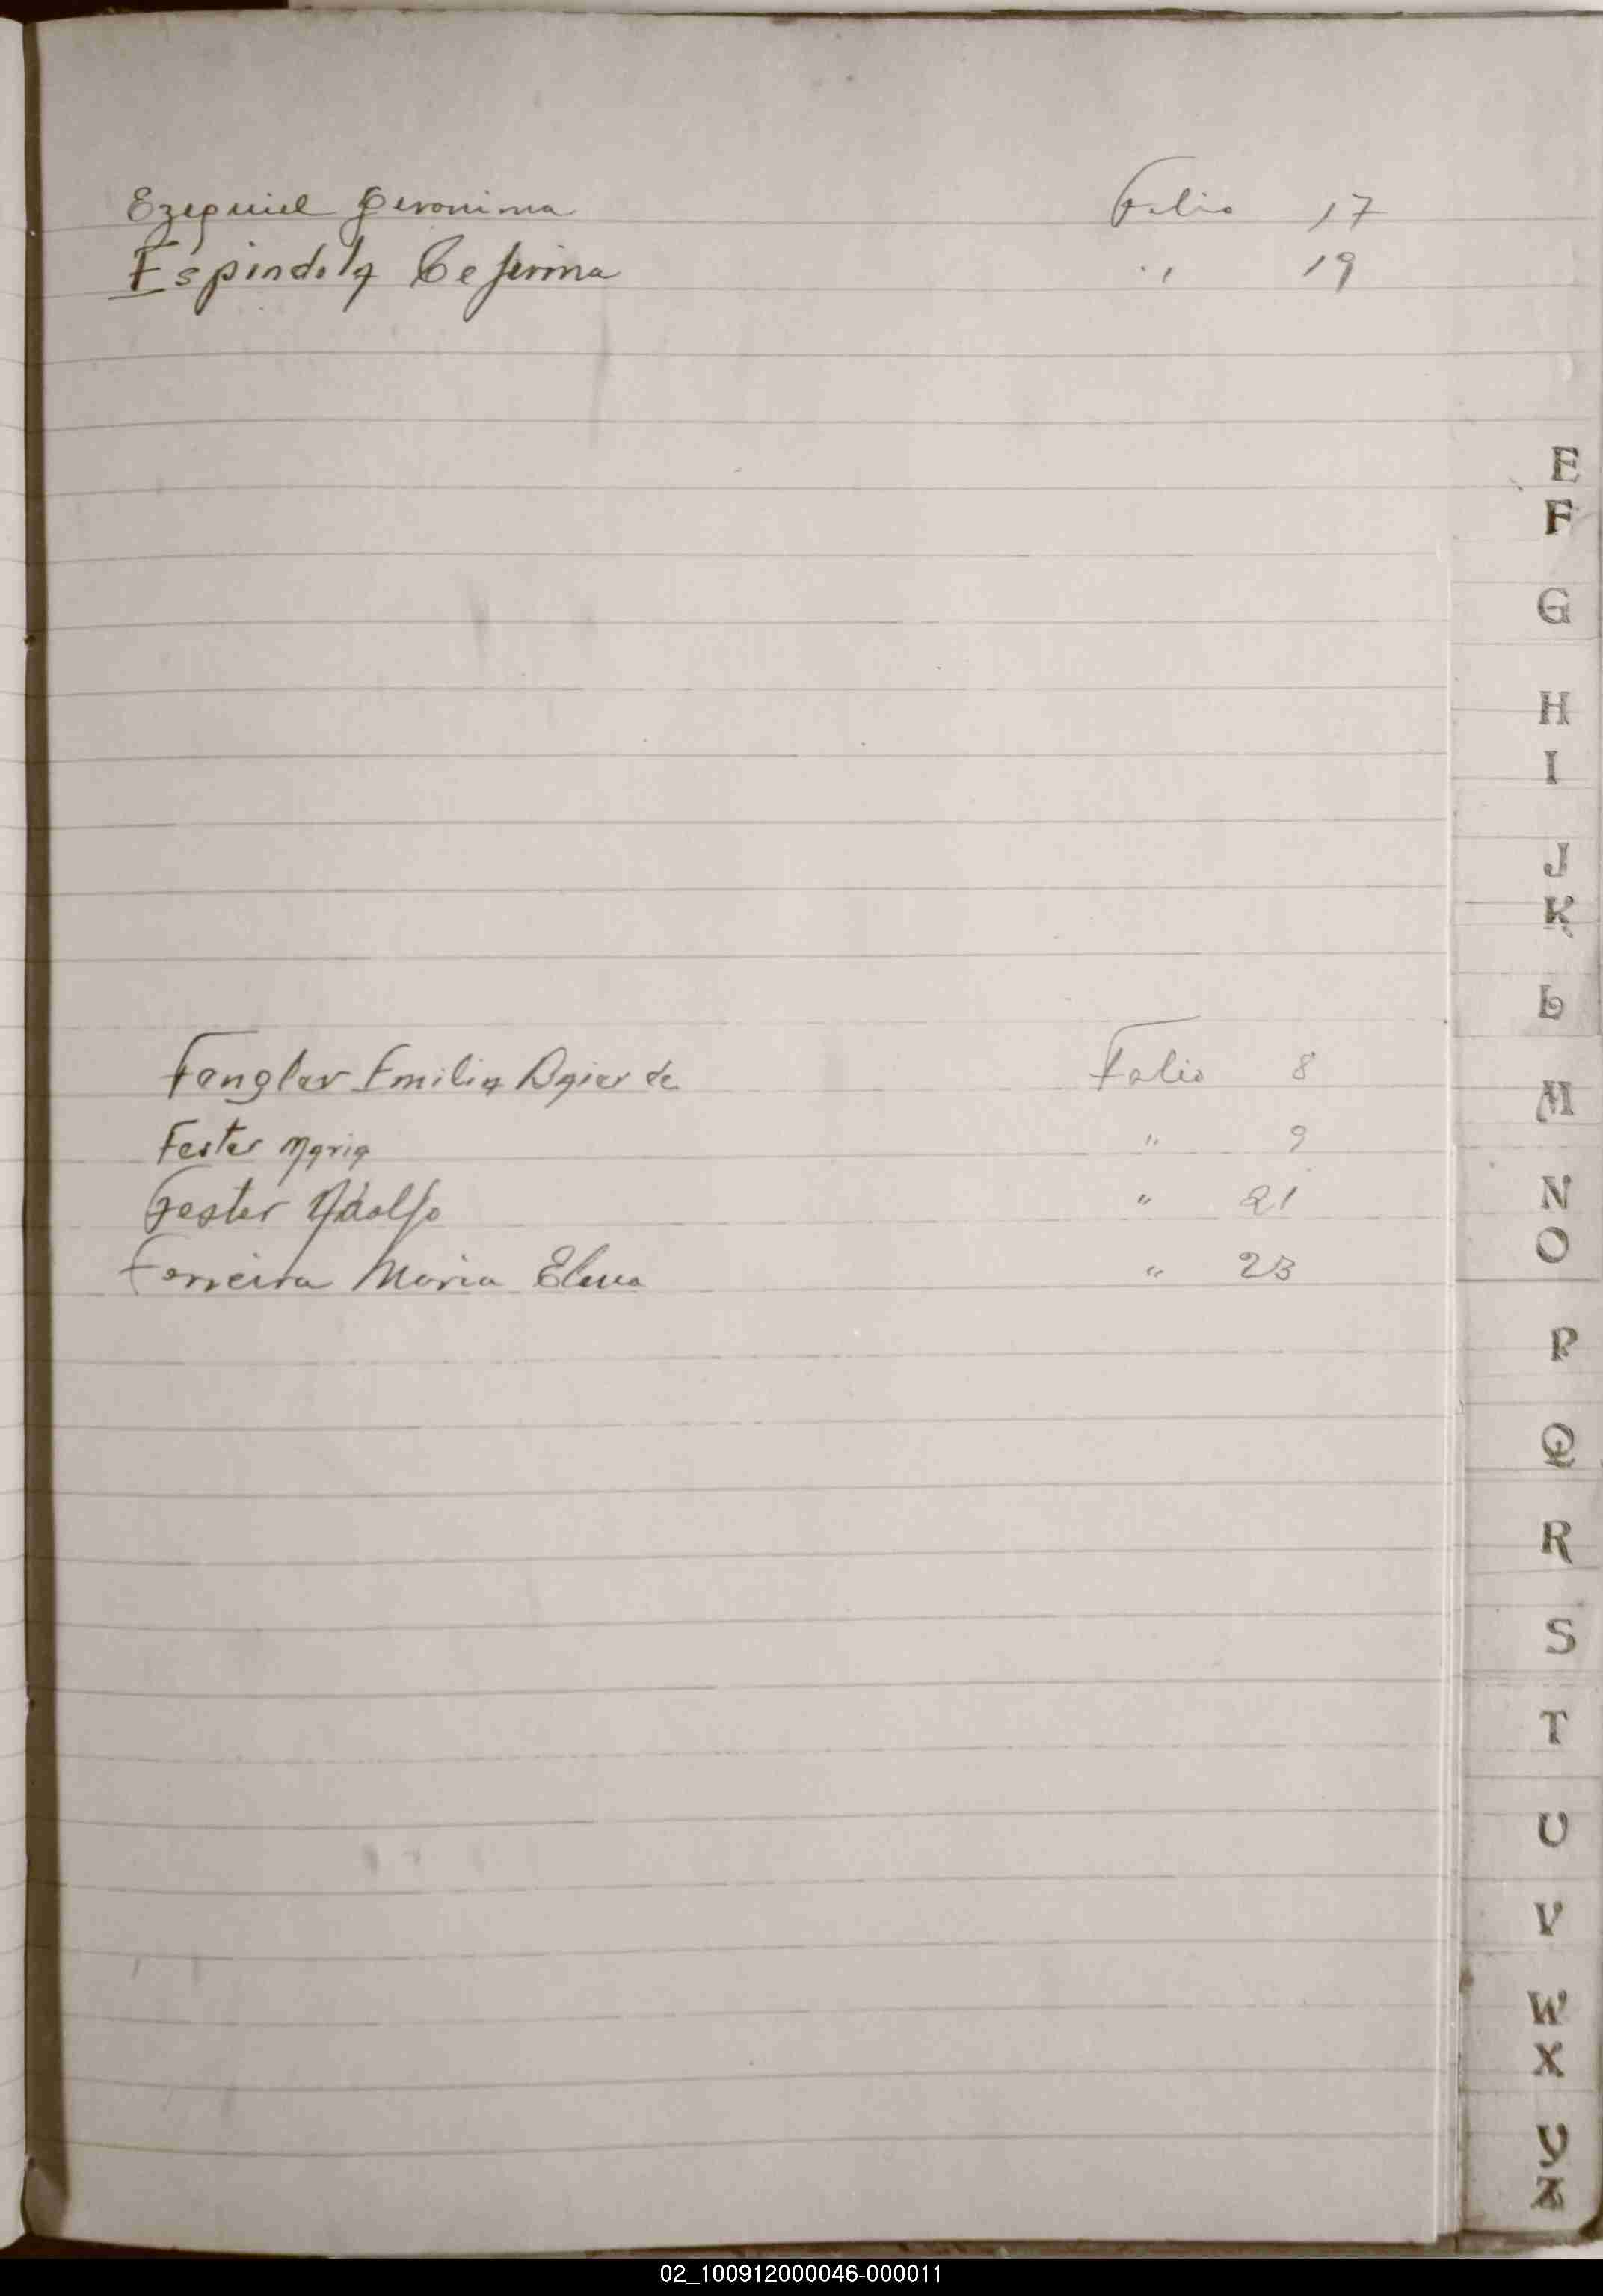 Ezequiel Geronima Folio 17
Espindola Ceferina " 19
Fenglar Emilia Baier de Folio 8
Fester Maria " 9
Fester Adolfo " 21
Ferreira Maria Elena " 23
E
F
G
H
I
J
K
L
M
N
O
P
Q
R
S
T
U
V
W
X
Y
Z
02_100912000046-000011